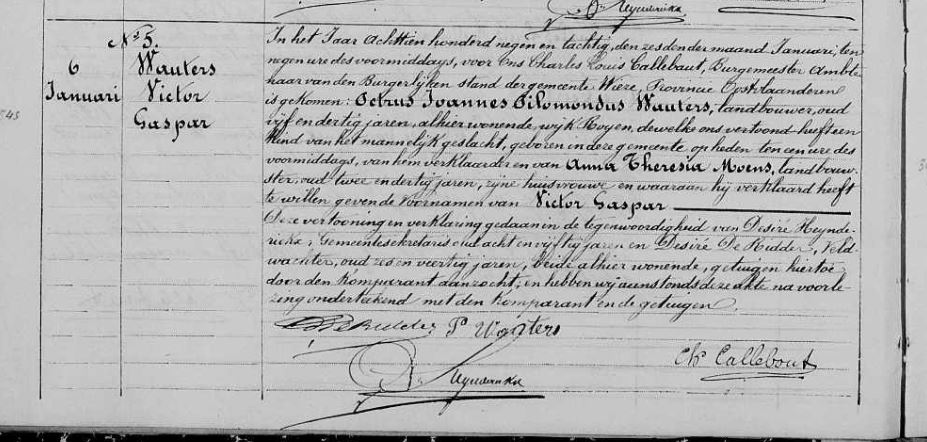 Nº 5.
6 Januari
Wauters
Victor
Gaspar
In het Jaar Achttien honderd negen en tachtig, den zesden der maand Januari, ten
negen ure des voormiddags, voor Ons Charles Louis Callebaut, Burgemeester Ambte
naar van den Burgerlijken stand der gemeente Wieze, Provincie Oostvlaanderen
is gekomen: Petrus Joannes Pilomondus Wauters, landbouwer, oud
vijf en dertig jaren, alhier wonende, wijk Royen, dewelke ons vertoond heeft een
Kind van het mannelijk geslacht, geboren in deze gemeente op heden ten een ure des
voormiddags, van hem verklaarder en van Anna Theresia Moens, landbouw-
ster, oud twee en dertig jaren, zijne huisvrouwe en waaraan hij verklaard heeft
te willen geven de voornamen van Victor Gaspar
Deze vertooning en verklaring gedaan in de tegenwoordigheid van Desiré Heynde-
rickx, Gemeentesekretaris oud acht en vijftig jaren en Desiré De Ridder, Veld
wachter, oud zes en veertig jaren, beide alhier wonende, getuigen hiertoe
door den Komparant aanzocht; en hebben wij aenstonds deze akte na voorle
zing onderteekend met den Komparant en de getuigen.
De Ridder P Wauters
Ch Callebaut